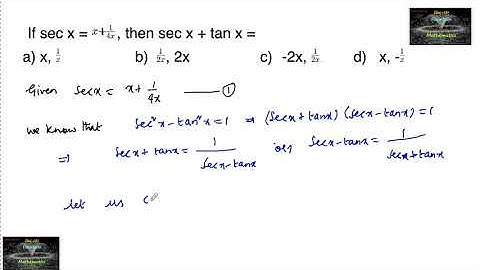 If sec x = x+1/4x, then sec x + tan x =
a) x, 1/x b) 1/2x, 2x c) -2x, 1/2x d) x, -1/x
Given secx = x + 1/4x ——— ①
we know that sec²x - tan²x = 1 ⇒ (secx + tanx) (secx - tanx) = 1
⇒ secx + tanx = 1/secx - tanx or, secx - tanx = 1/secx + tanx
let us
Mathematics